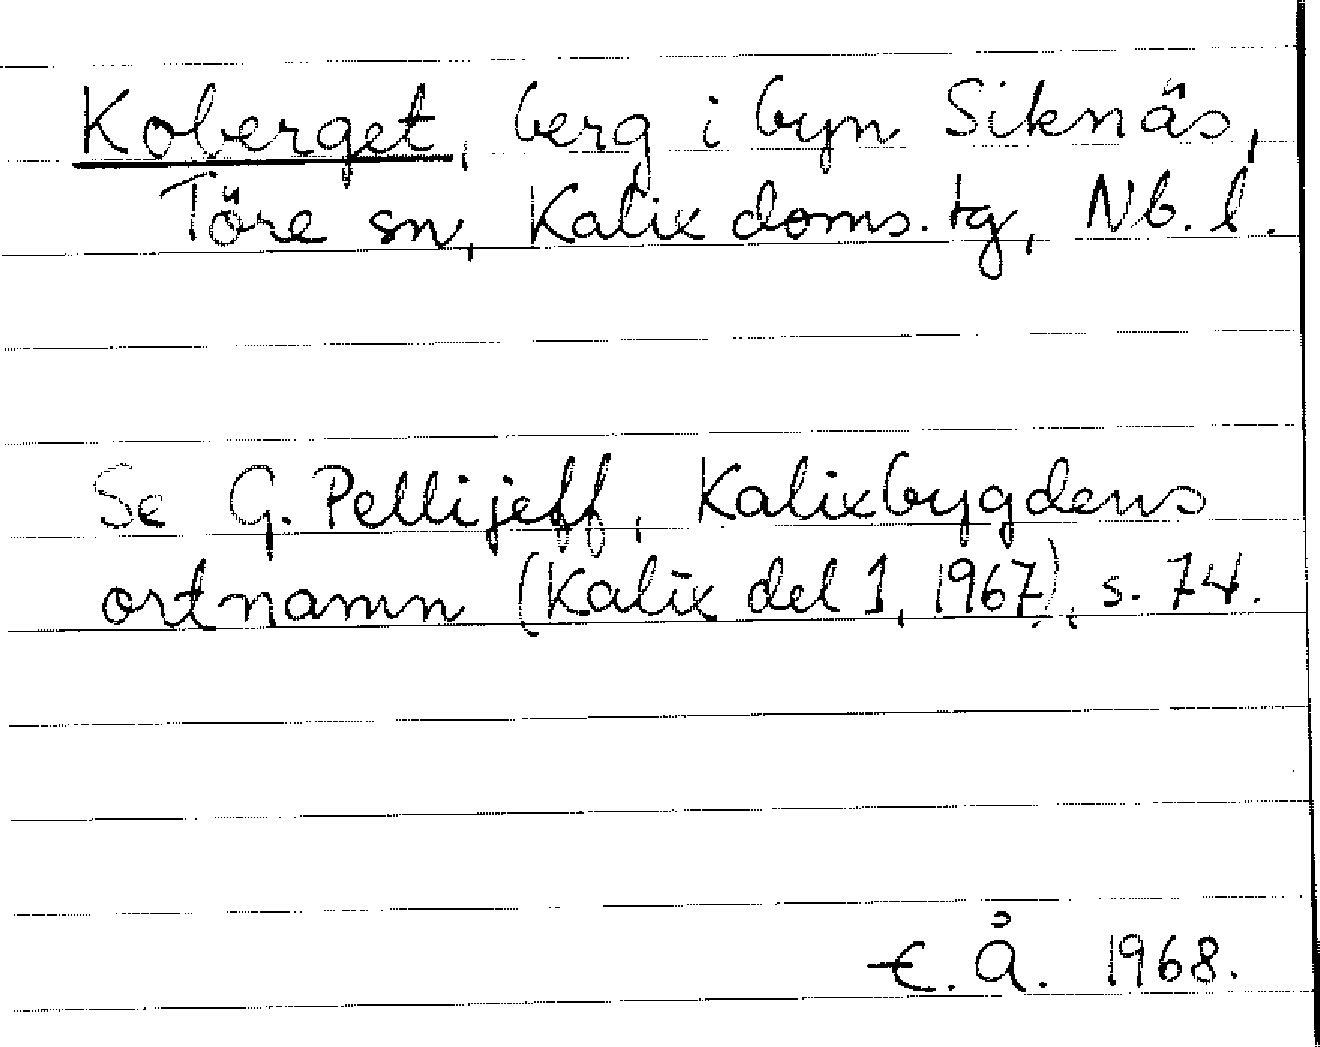 Koberget, berg i byn Siknäs,
Töre sn, Kalix doms. tg, Nb. l.
Se G. Pellijeff, Kalixbygdens
ortnamn (Kalix del 1, 1967), s. 74.
E. Å. 1968.